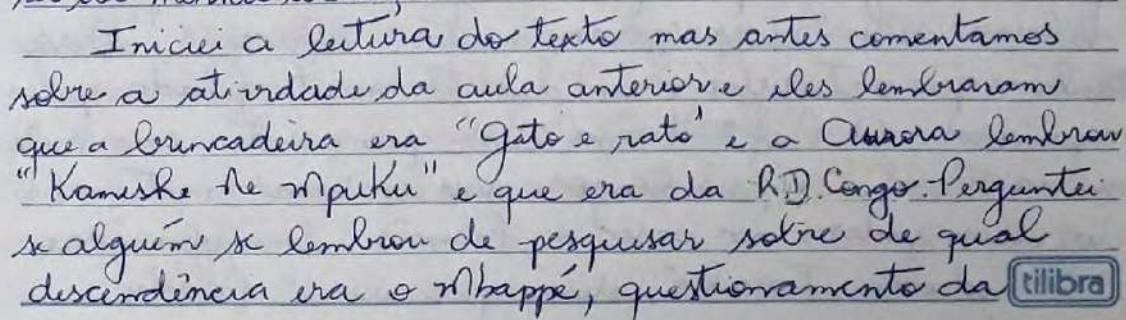 Iniciei a leitura do texto mas antes comentamos
sobre a atividade da aula anterior e eles lembraram
que a brincadeira era "gato e rato" e a Aurora lembrou
"Kamushe Ne Mpuku" e que era da RD. Congo. Perguntei
se alguém se lembrou de pesquisar sobre de qual
descendência era o Mbappé, questionamento da tilibra